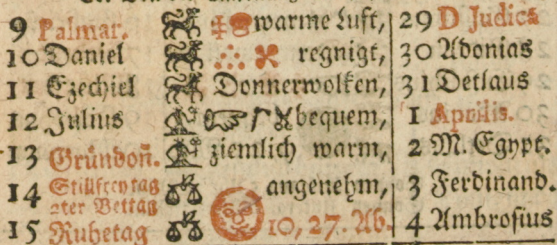 9 Palmar. warme Luft, 29 D Judica
10 Daniel regnigt, 30 Adonias
11 Ezechiel Donnerwolken, 31 Detlaus
12 Julius bequem, 1 Aprilis.
13 Gründoñ. ziemlich warm, 2 M. Egypt.
14 Stillfreytag angenehm, 3 Ferdinand.
2ter Bettag
15 Ruhetag 10, 27. Ab. 4 Ambrosius